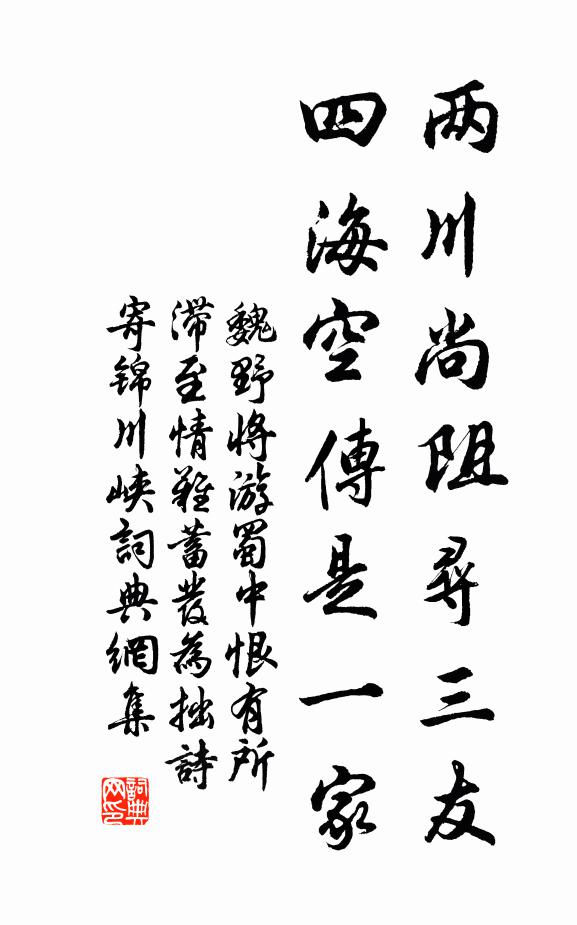 两川尚阻尋三友
四海空傳是一家
魏野将游蜀中恨有所
滯至情難蓄發為拙詩
寄锦川峽詞典網集
詞典
网印